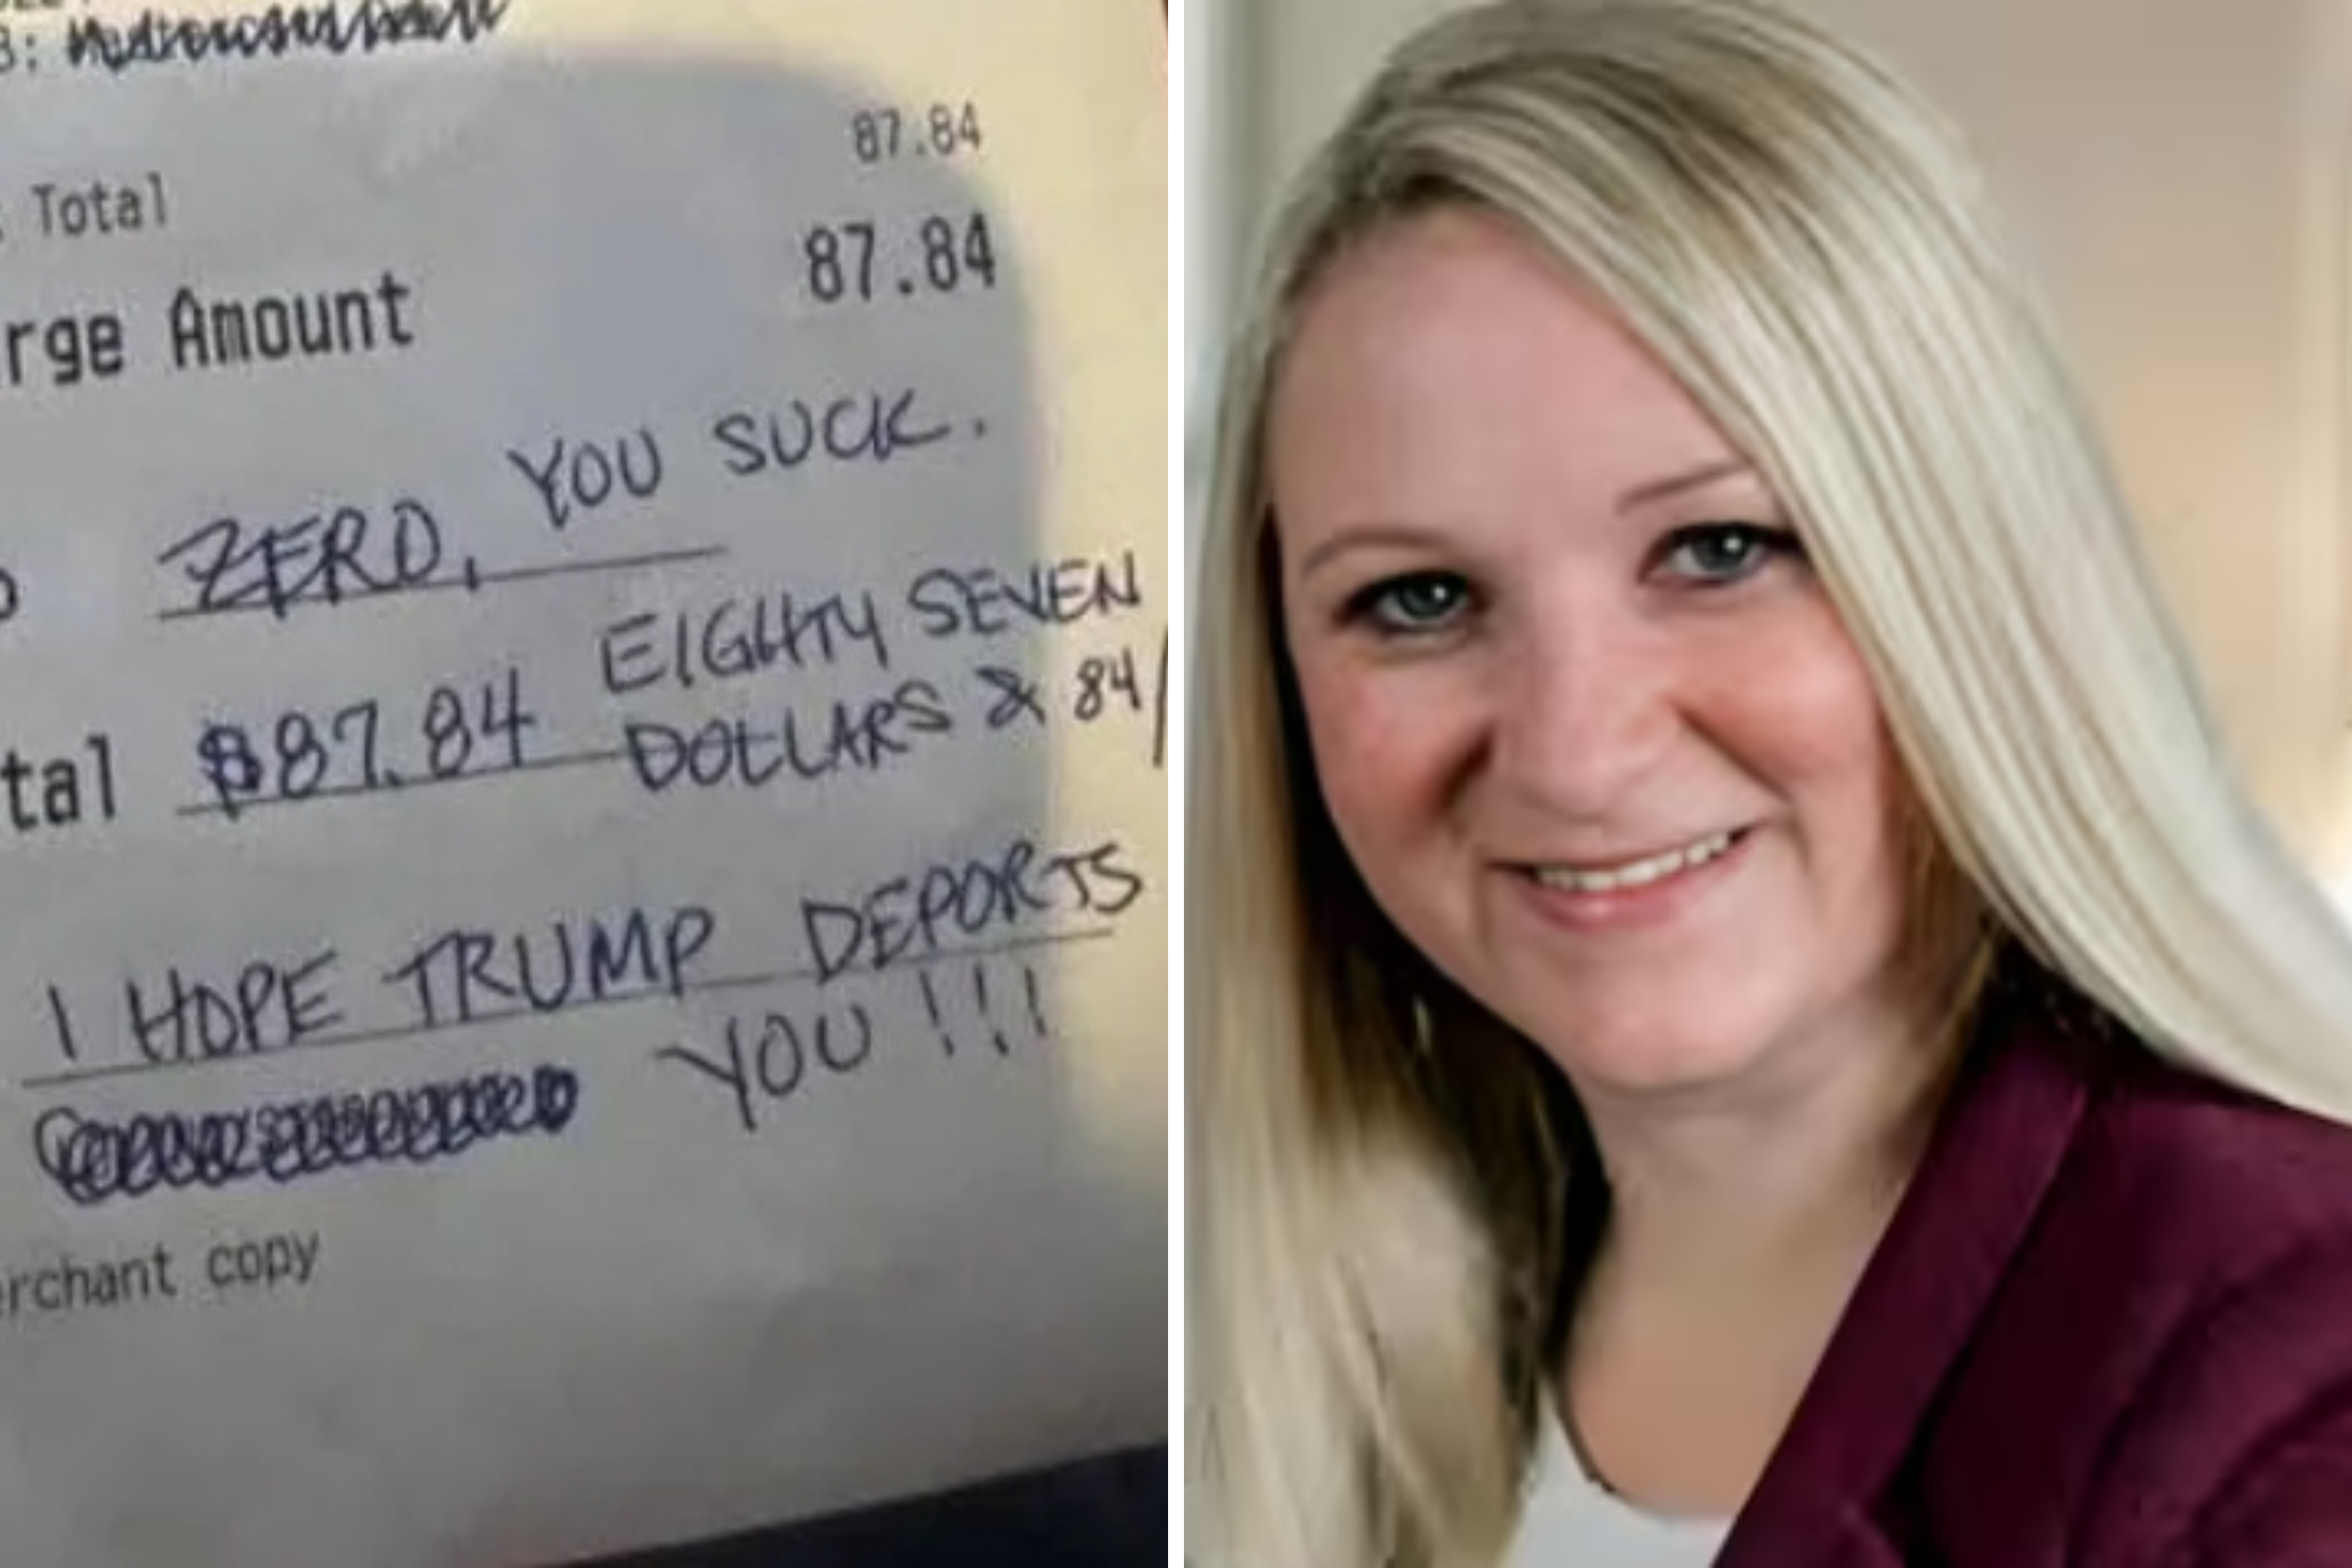 87.84
Total
87.84
Amount
ZERO, YOU SUCK.
$87.84 EIGHTY SEVEN
DOLLARS & 84/
I HOPE TRUMP DEPORTS
YOU!!!
copy